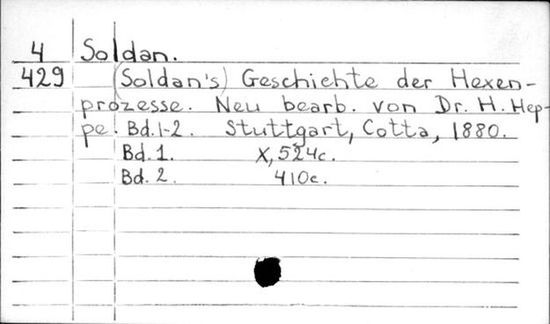 4 Soldan.
429 (Soldan's) Geschichte der Hexen-
prozesse. Neu bearb. von Dr. H. Hep-
pe. Bd. 1-2. Stuttgart, Cotta, 1880.
Bd. 1. X, 524c.
Bd. 2. 410c.